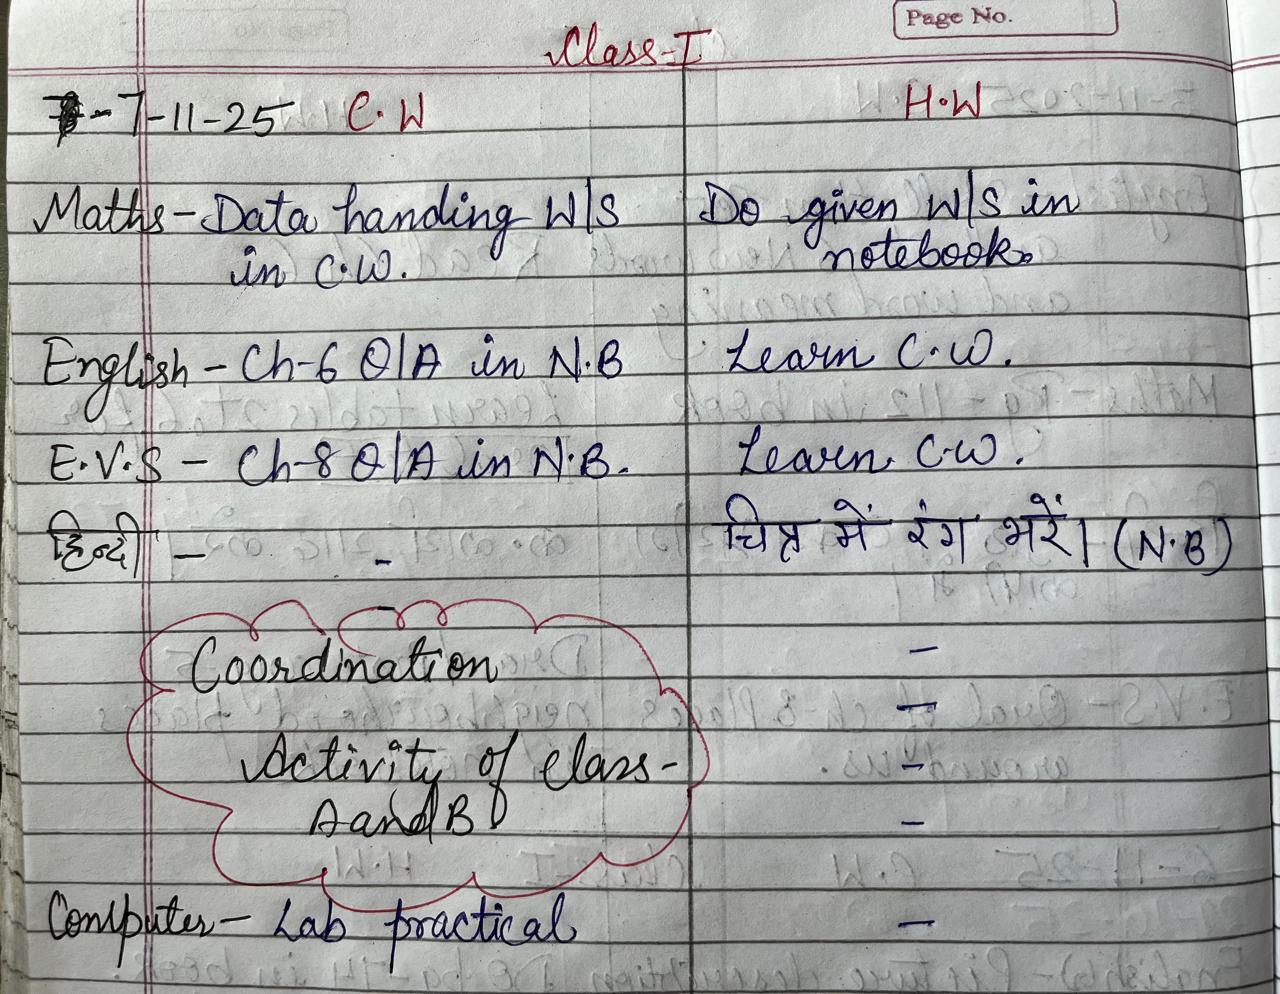 Page No.
Class-I
7-11-25 C.W H.W
Maths - Data handing W/S Do given W/S in
in C.W. notebook.
English - Ch-6 Q/A in N.B Learn C.W.
E.V.S - Ch-8 Q/A in N.B. Learn C.W.
हिन्दी - - चित्र में रंग भरें। (N.B)
Coordination
Activity of class-
A and B
Computer - Lab practical -